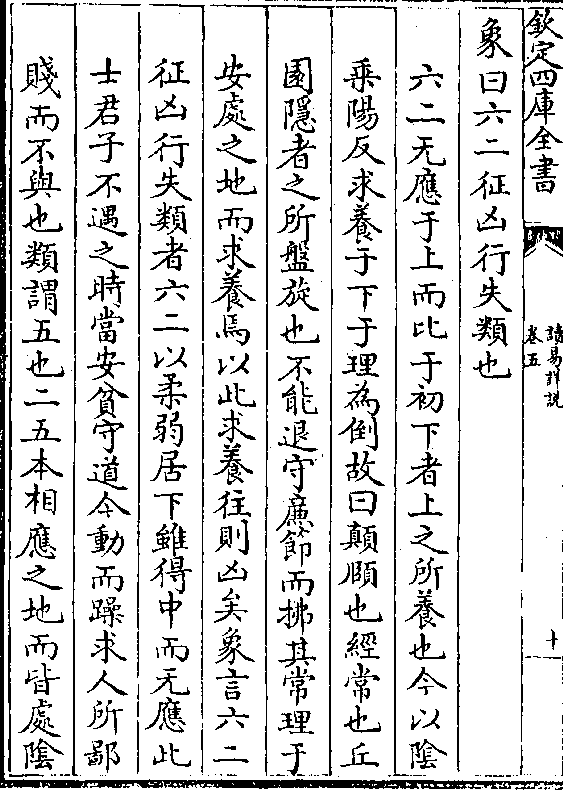 欽定四庫全書
讀易詳說
卷五
十
象曰六二征凶行失類也
六二无應于上而比于初下者上之所養也今以陰
乘陽反求養于下于理為倒故曰顛頤也經常也丘
園隱者之所盤旋也不能退守廉節而拂其常理于
安處之地而求養焉以此求養往則凶矣象言六二
征凶行失類者六二以柔弱居下雖得中而无應此
士君子不遇之時當安貧守道今動而躁求人所鄙
賤而不與也類謂五也二五本相應之地而皆處陰